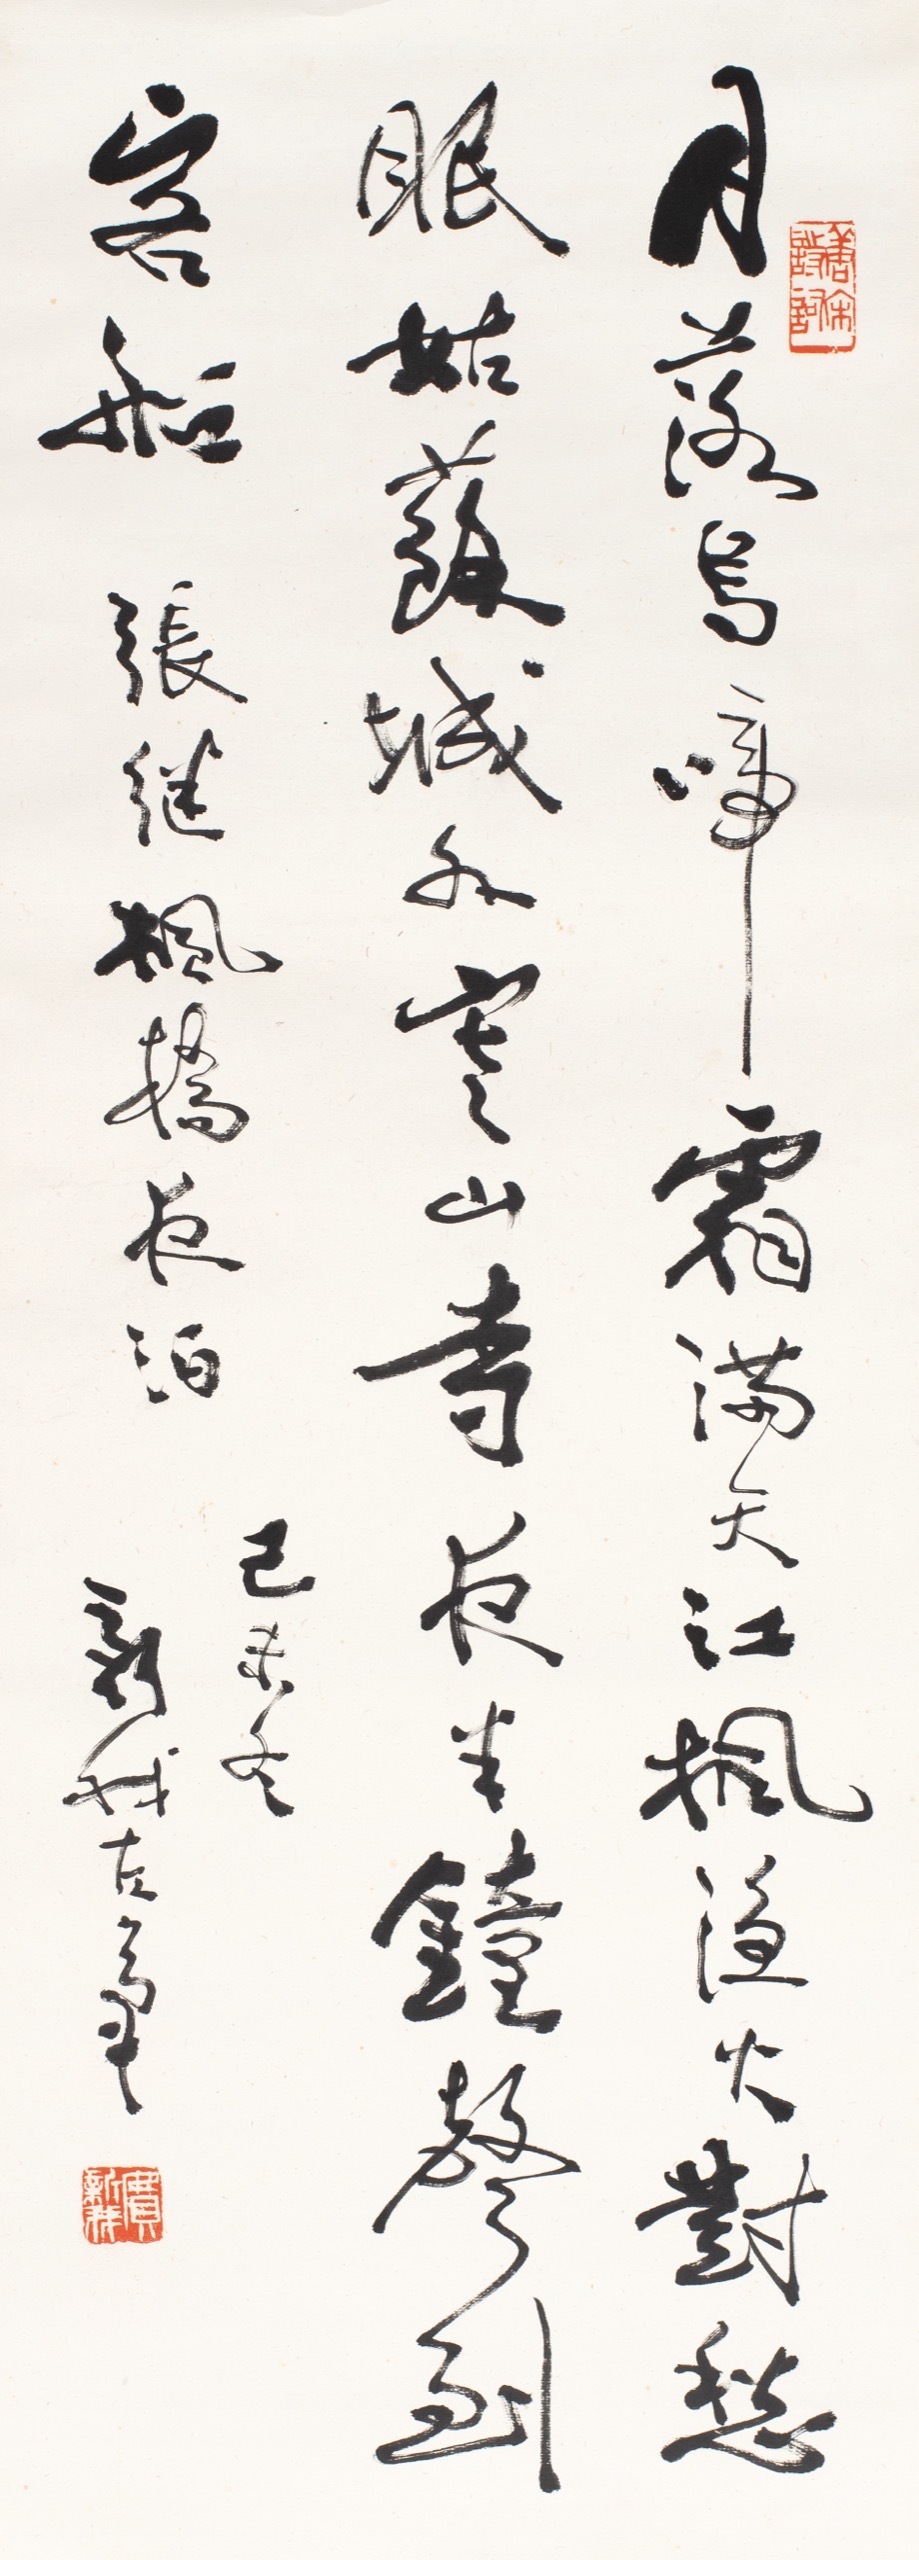 月落烏啼霜滿天江楓漁火對愁
眠姑蘇城外寒山寺夜半鐘聲到
客船
張継楓橋夜泊
己未冬
新城
唐宋詩詞